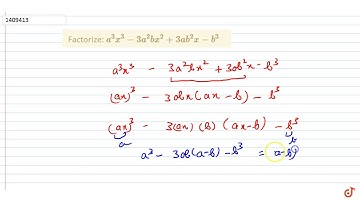 1409413
Factorize: a³x³ − 3a²bx² + 3ab²x − b³
a³x³ − 3a²bx² + 3ab²x − b³
(ax)³ − 3abx(ax − b) − b³
(ax)³ − 3(ax)(b)(ax − b) − b³
a b
a³ − 3ab(a−b) − b³ = (a−b)³
doubtnut